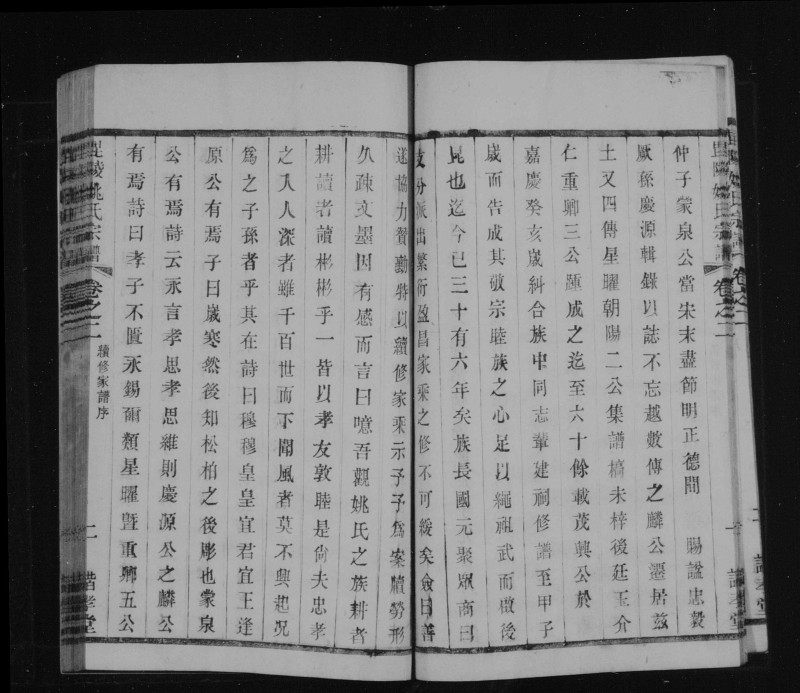 毘陵姚氏宗譜 卷之二
仲子蒙泉公當宋末盡節明正德間 賜諡忠毅
厥孫慶源輯錄以誌不忘越數傳之麟公遷居茲
土又四傳星曜朝陽二公集譜槁未梓後廷玉介
仁重卿三公踵成之迄至六十餘載茂興公於
嘉慶癸亥歲糾合族中同志輩建祠修譜至甲子
歲而告成其敬宗睦族之心足以繩祖武而啟後
昆也迄今已三十有六年矣族長國元聚眾商曰
支分派出繁衍盈昌家乘之修不可緩矣僉曰善
遂協力贊勷特以續修家乘示予予爲案牘勞形
久疎文墨因有感而言曰噫吾觀姚氏之族耕者
耕讀者讀彬彬乎一皆以孝友敦睦是尙夫忠孝
之入人深者雖千百世而下聞風者莫不興起况
爲之子孫者乎其在詩曰穆穆皇皇宜君宜王逢
原公有焉子曰歲寒然後知松柏之後彫也蒙泉
公有焉詩云永言孝思孝思維則慶源公之麟公
有焉詩曰孝子不匱永錫爾類星曜曁重卿五公
毘陵姚氏宗譜 卷之二 續修家譜序 二 諧孝堂